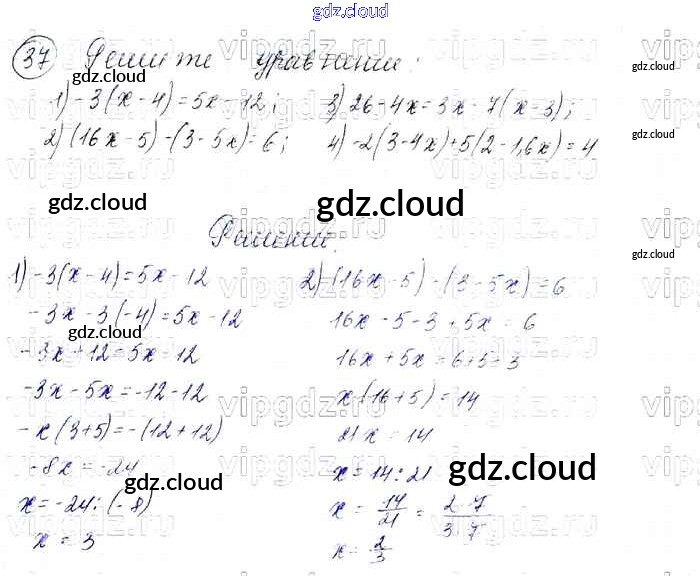 gdz.cloud
37 Решите уравнение:
1) -3(x-4)=5x-12; 3) 26-4x=3x-7(x-3);
2) (16x-5)-(3-5x)=6; 4) -2(3-4x)+5(2-1,6x)=4
Решение.
1) -3(x-4)=5x-12
-3x-3(-4)=5x-12
-3x+12=5x-12
-3x-5x=-12-12
-x(3+5)=-(12+12)
-8x=-24
x=-24:(-8)
x=3
2) (16x-5)-(3-5x)=6
16x-5-3+5x=6
16x+5x=6+5+3
x(16+5)=14
21x=14
x=14:21
x=14/21=2·7/3·7
x=2/3
gdz.cloud
gdz.cloud
gdz.cloud
gdz.cloud
gdz.cloud
gdz.cloud
gdz.cloud
gdz.cloud
gdz.cloud
gdz.cloud
vipgdz.ru